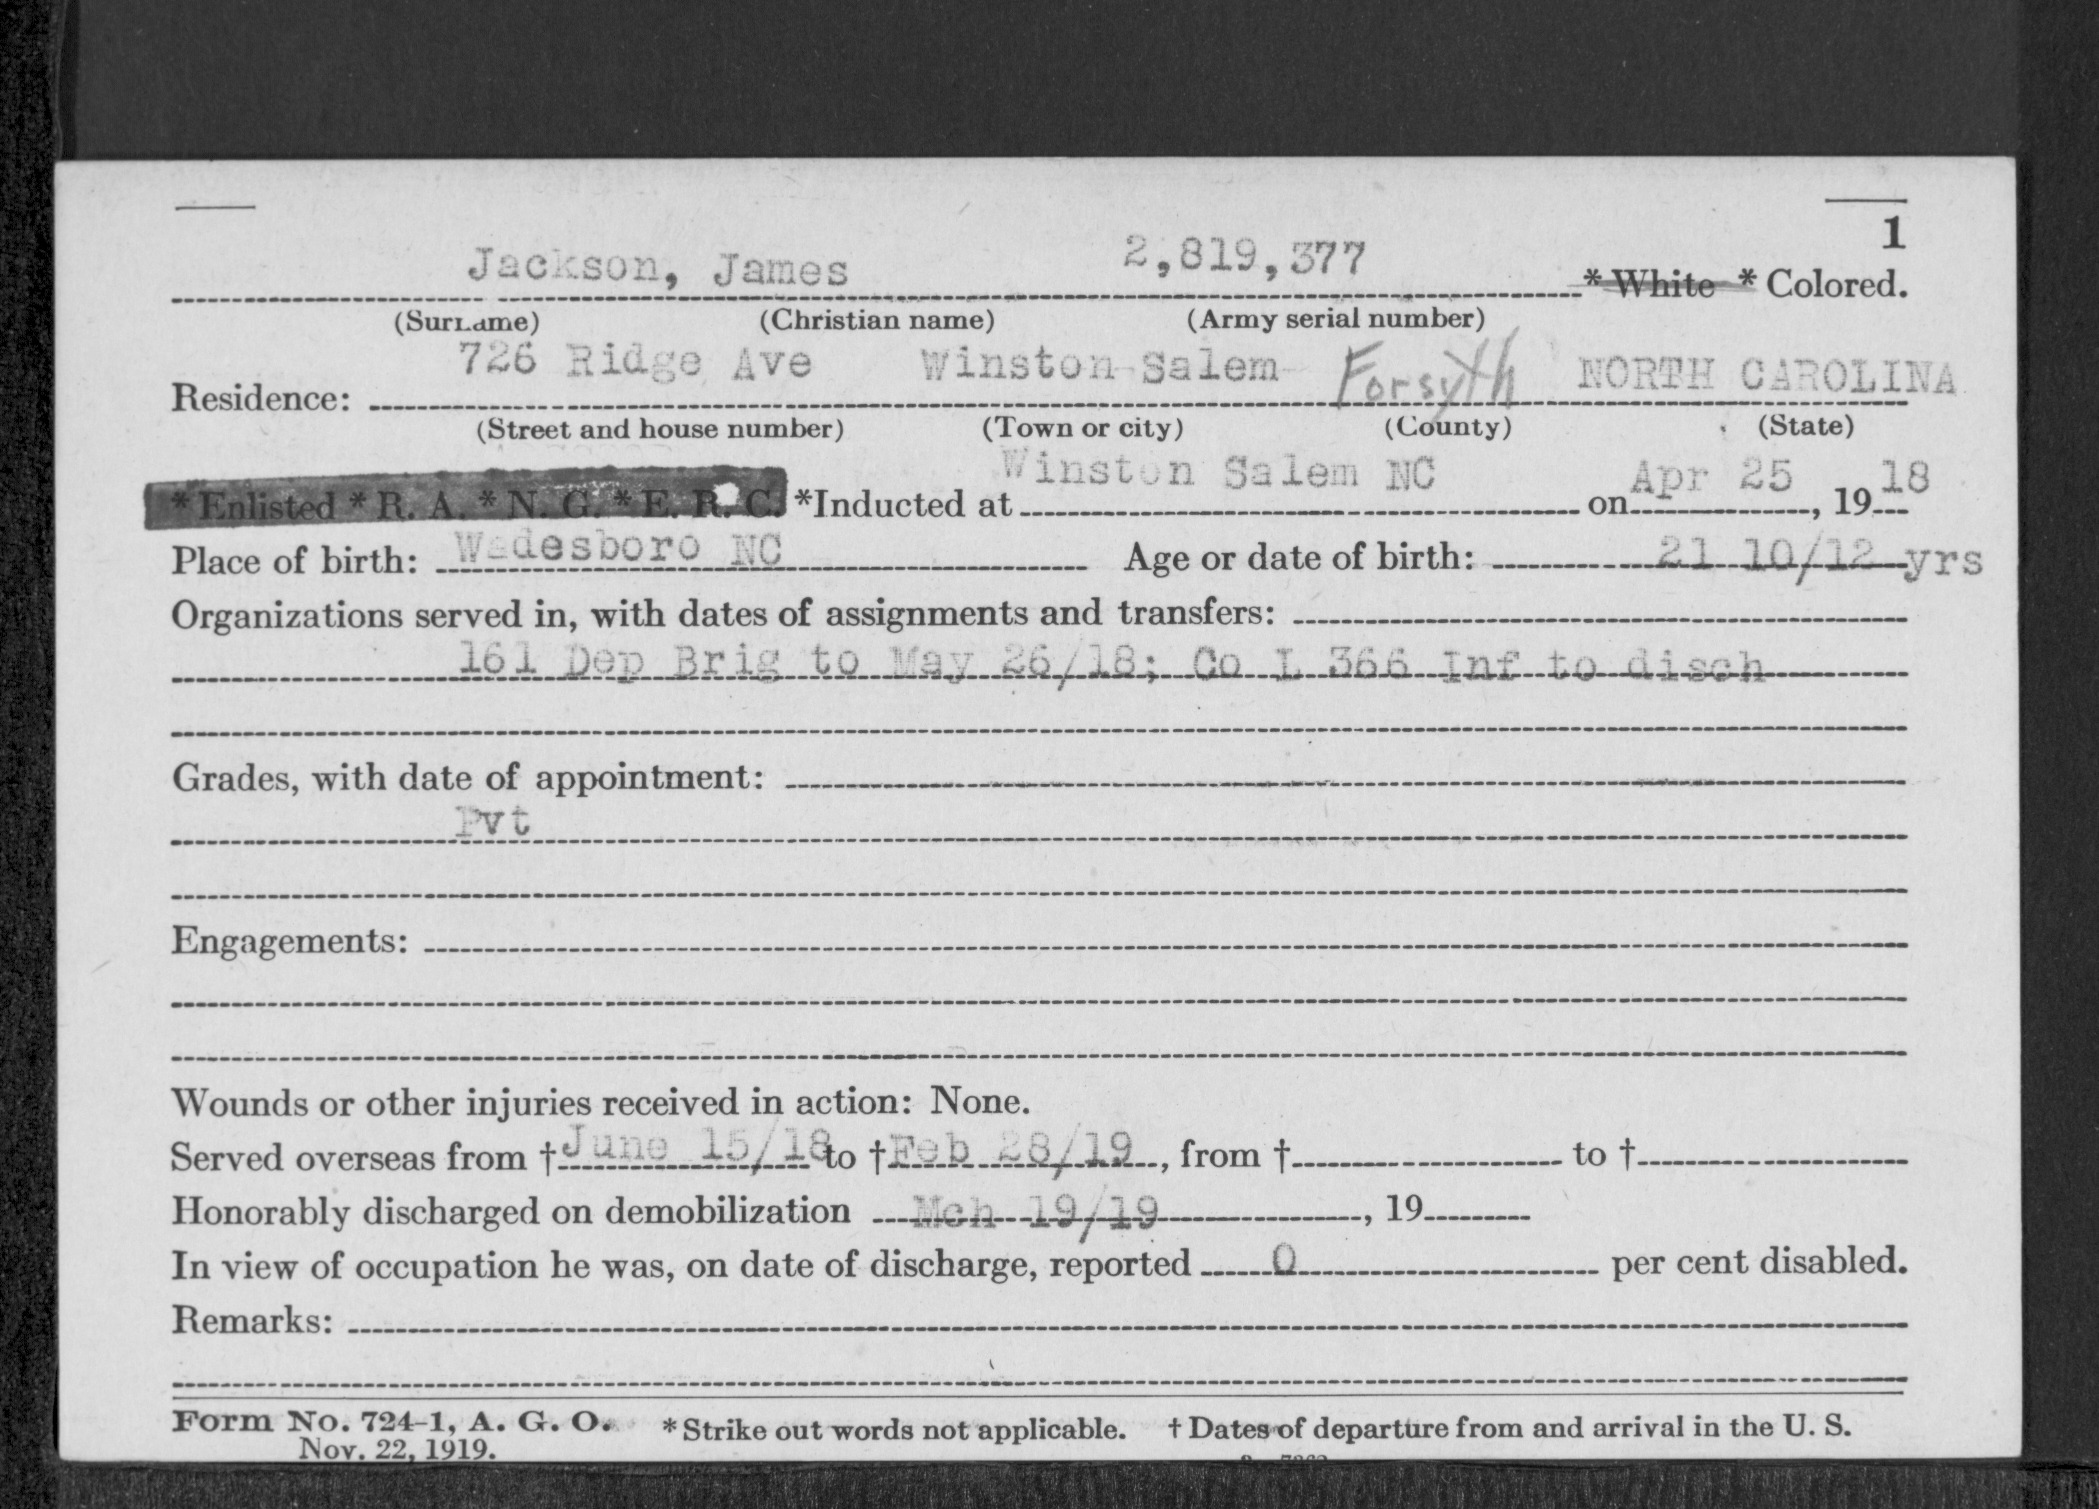 1
Jackson, James 2,819,377 * White * Colored.
(Surname) (Christian name) (Army serial number)
726 Ridge Ave Winston-Salem Forsyth NORTH CAROLINA
Residence:
(Street and house number) (Town or city) (County) (State)
* Enlisted * R. A. * N. G. * E. R. C. *Inducted at Winston Salem NC on Apr 25, 1918
Place of birth: Wadesboro NC Age or date of birth: 21 10/12 yrs
Organizations served in, with dates of assignments and transfers:
161 Dep Brig to May 26/18; Co L 366 Inf to disch
Grades, with date of appointment:
Pvt
Engagements:
Wounds or other injuries received in action: None.
Served overseas from † June 15/18 to † Feb 28/19, from † to †
Honorably discharged on demobilization Mch 19/19, 19
In view of occupation he was, on date of discharge, reported 0 per cent disabled.
Remarks:
Form No. 724-1, A. G. O. * Strike out words not applicable. † Dates of departure from and arrival in the U. S.
Nov. 22, 1919.